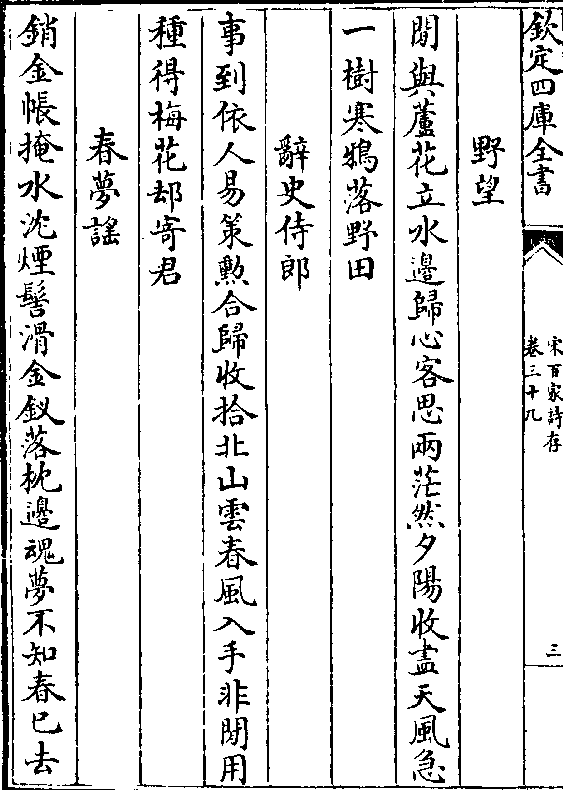 欽定四庫全書
宋百家詩存
卷三十九
三
野望
閒與蘆花立水邊歸心客思兩茫然夕陽收盡天風急
一樹寒鴉落野田
辭史侍郎
事到依人易策勲合歸收拾北山雲春風入手非閒用
種得梅花却寄君
春夢謡
銷金帳掩水沈煙髻滑金釵落枕邊魂夢不知春已去